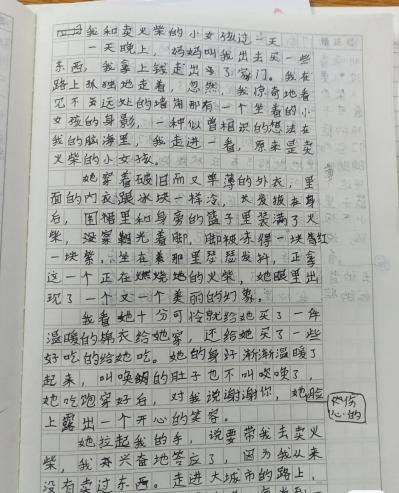 我和卖火柴的小女孩过一天
一天晚上，妈妈叫我出去买一些
东西，我拿上钱走出了家门。我在
路上孤独地走着，忽然，我惊奇地看
见不远处的墙角那有一个坐着的小
女孩的身影，一种似曾相识的想法在
我的脑海里，我走进一看，原来是卖
火柴的小女孩。
她穿着破旧而又单薄的外衣，里
面的内衣跟冰块一样冷，长发披在身
后，围裙里和身旁的篮子里装满了火
柴，光着脚，脚被冻得一块红
一块紫，坐在那里瑟瑟发抖，正拿
这一个正在燃烧地的火柴，她眼里出
现了一个又一个美丽的幻象。
我看她十分可怜就给她买了一件
温暖的棉衣给她穿，还给她买了一些
好吃的给她吃。她的身子渐渐温暖了
起来，叫唤的肚子也不叫唤了，
她吃饱穿好后，对我说谢谢你，她脸
上露出一个开心的笑容。
心的
她拉起我的手，说要带我去卖火
柴，我兴奋地答应了，因为我从来
没有卖过东西。走进大城市的路上，